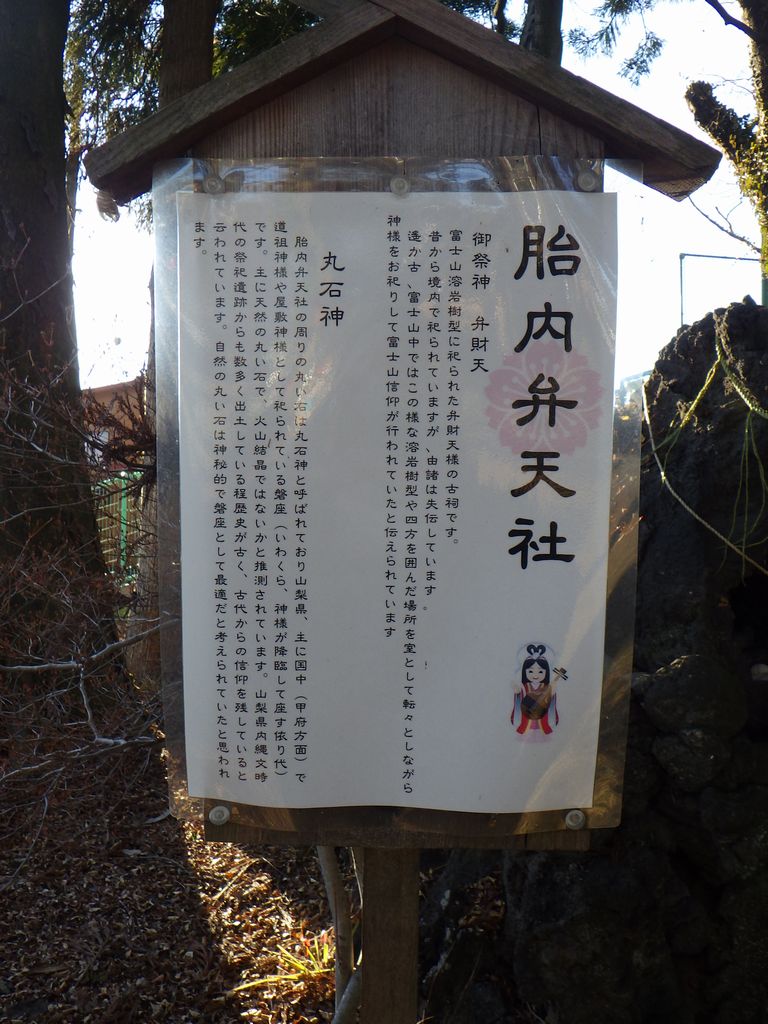 胎内弁天社
御祭神　弁財天
富士山溶岩樹型に祀られた弁財天様の古祠です。
昔から境内で祀られていますが、由諸は失伝しています。
遙か古、富士山中ではこの様な溶岩樹型や四方を囲んだ場所を室として転々としながら
神様をお祀りして富士山信仰が行われていたと伝えられています
丸石神
胎内弁天社の周りの丸い石は丸石神と呼ばれており山梨県、主に国中（甲府方面）で
道祖神様や屋敷神様として祀られている磐座（いわくら、神様が降臨して座す依り代）
です。主に天然の丸い石で、火山結晶ではないかと推測されています。山梨県内縄文時
代の祭祀遺跡からも数多く出土している程歴史が古く、古代からの信仰を残していると
云われています。自然の丸い石は神秘的で磐座として最適だと考えられていたと思われ
ます。